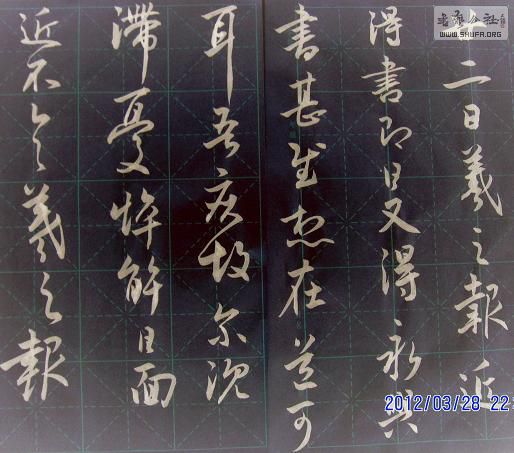 廿二日羲之報近
得書即日又得永興
書甚慰想在道可
耳吾疾故尔沉
滯憂悴解日面
近不具羲之報
书法公社
WWW.SHUFA.ORG
2012/03/28 22